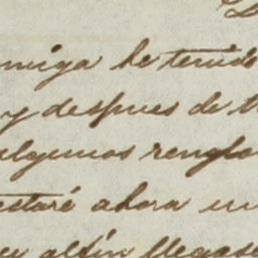 amiga he tenido
y despues de
algunos renglo
estaré ahora en
al fin llegase